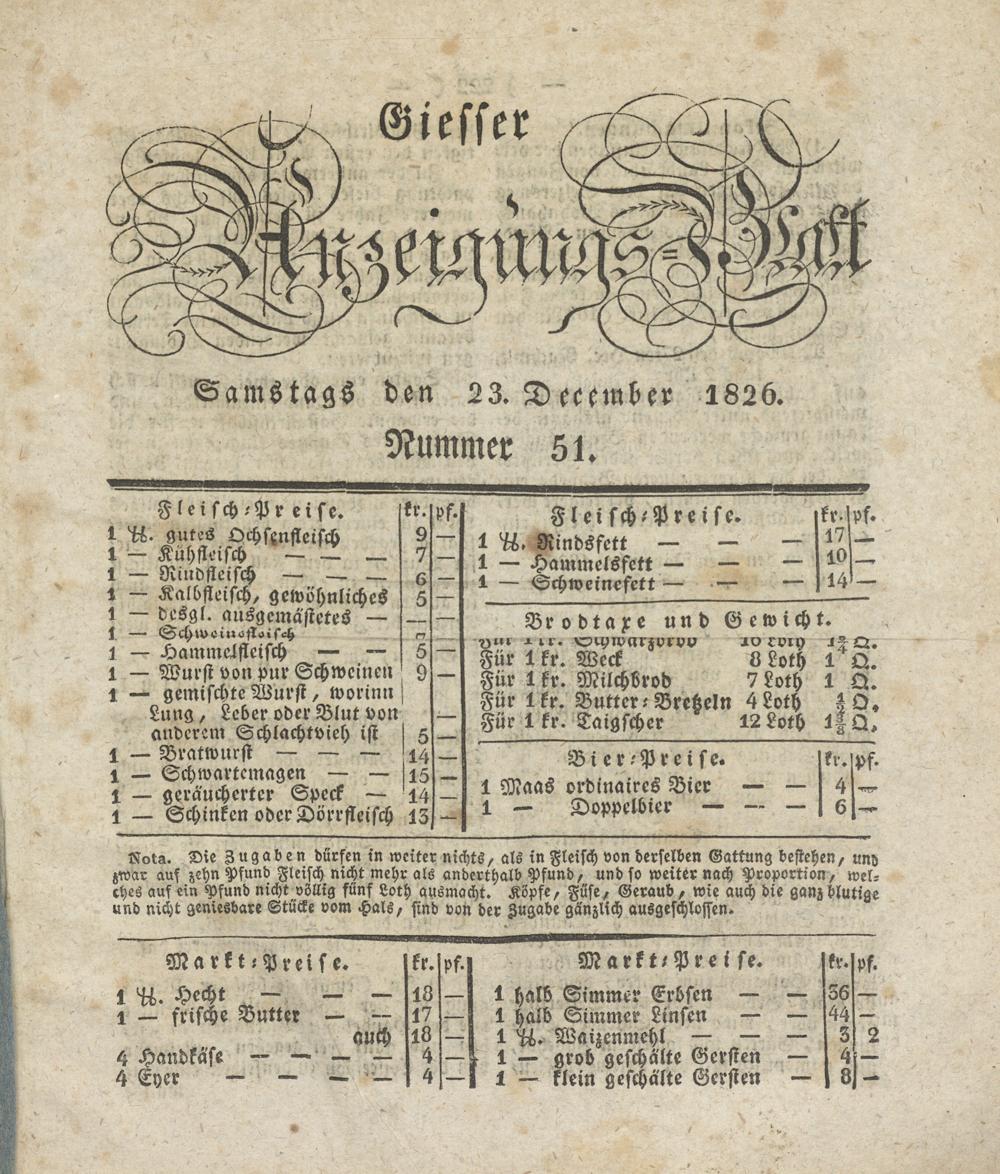 Giesser
Anzeigungs-Blatt
Samstags den 23. December 1826.
Nummer 51.
Fleisch-Preise. kr. pf.
1 ℔. gutes Ochsenfleisch 9 —
1 — Kühfleisch — — — 7 —
1 — Rindfleisch — — — 6 —
1 — Kalbfleisch, gewöhnliches 5 —
1 — desgl. ausgemästetes — — —
1 — Schweinefleisch
1 — Hammelfleisch — — 5 —
1 — Wurst von pur Schweinen 9 —
1 — gemischte Wurst, worinn
Lung, Leber oder Blut von
anderem Schlachtvieh ist 5 —
1 — Bratwurst — — — 14 —
1 — Schwartemagen — — 15 —
1 — geräucherter Speck — 14 —
1 — Schinken oder Dörrfleisch 13 —
Fleisch-Preise. kr. pf.
1 ℔. Rindsfett — — — 17 —
1 — Hammelsfett — — 10 —
1 — Schweinefett — — — 14 —
Brodtaxe und Gewicht.
Für 1 kr. Schwarzbrod 10 Loth 1¾ Q.
Für 1 kr. Weck 8 Loth 1 Q.
Für 1 kr. Milchbrod 7 Loth 1 Q.
Für 1 kr. Butter-Bretzeln 4 Loth Q.
Für 1 kr. Taigscher 12 Loth Q.
Bier-Preise. kr. pf.
1 Maas ordinaires Bier — — 4 —
1 — Doppelbier — — — 6 —
Nota. Die Zugaben dürfen in weiter nichts, als in Fleisch von derselben Gattung bestehen, und
zwar auf zehn Pfund Fleisch nicht mehr als anderthalb Pfund, und so weiter nach Proportion, wel-
ches auf ein Pfund nicht völlig fünf Loth ausmacht. Köpfe, Füse, Geraub, wie auch die ganz blutige
und nicht geniesbare Stücke vom Hals, sind von der Zugabe gänzlich ausgeschlossen.
Markt-Preise. kr. pf.
1 ℔. Hecht — — — 18 —
1 — frische Butter — — 17 —
auch 18 —
4 Handkäse — — — — 4 —
4 Eyer — — — — 4 —
Markt-Preise. kr. pf.
1 halb Simmer Erbsen — — 36 —
1 halb Simmer Linsen — — 44 —
1 ℔. Waizenmehl — — — 3 2
1 — grob geschälte Gersten — 4 —
1 — klein geschälte Gersten — 8 —